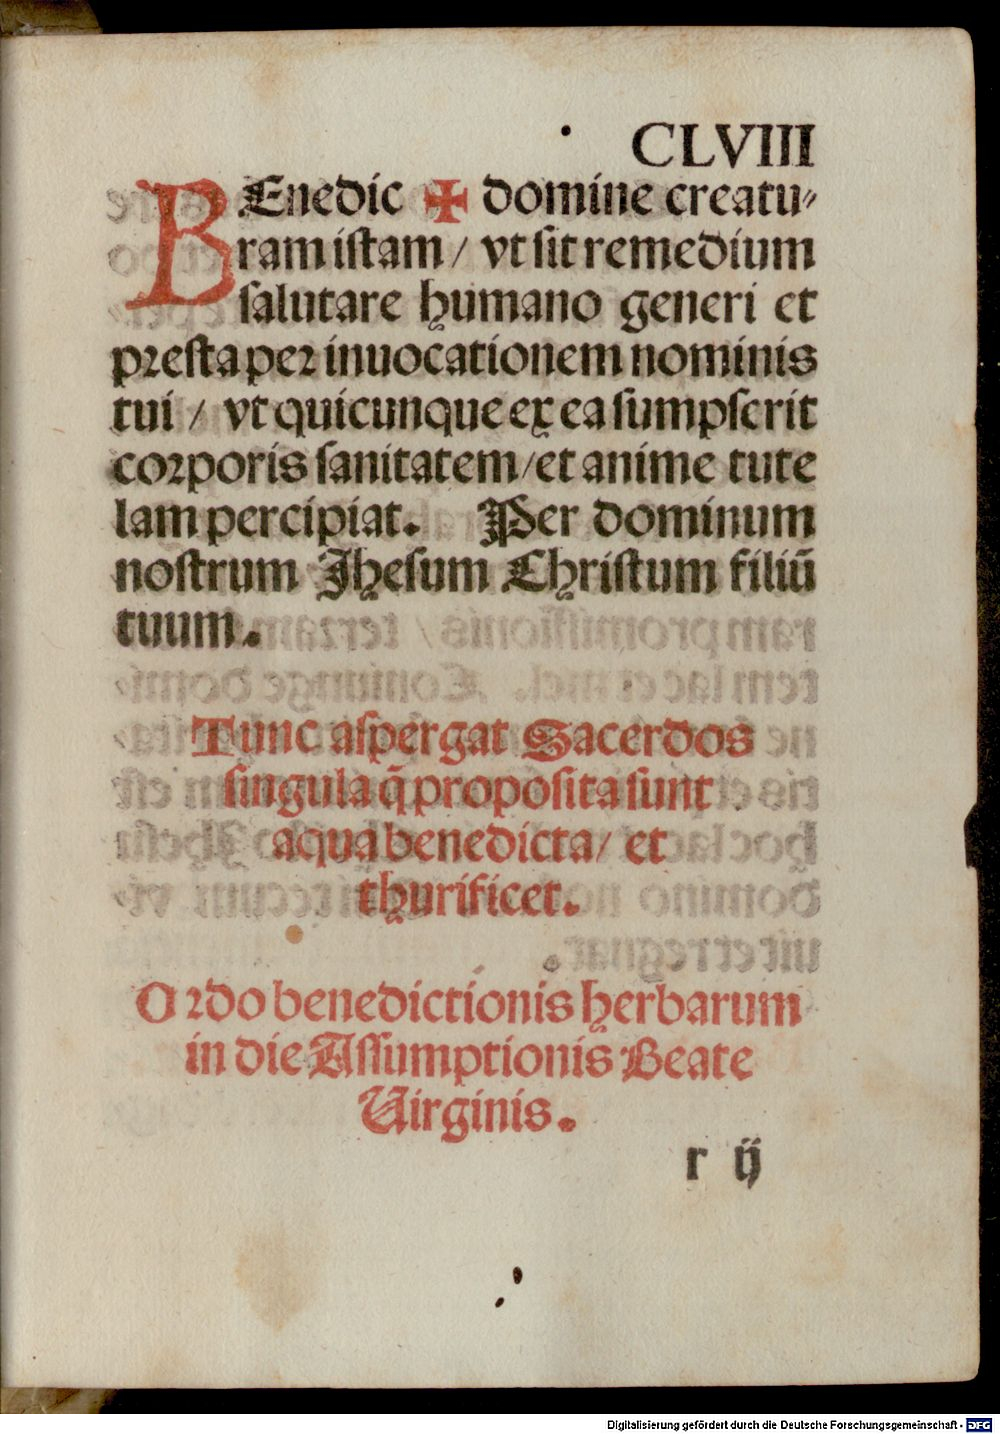 CLVIII
BEnedic ✠ domine creatu⸗
ram istam / vt sit remedium
salutare humano generi et
presta per inuocationem nominis
tui / vt quicunque ex ea sumpserit
corporis sanitatem / et anime tute
lam percipiat. Per dominum
nostrum Jhesum Christum filiū
tuum.
Tunc aspergat Sacerdos
singula q̄ proposita sunt
aqua benedicta / et
thurificet.
Ordo benedictionis herbarum
in die Assumptionis Beate
Uirginis.
r ij
Digitalisierung gefördert durch die Deutsche Forschungsgemeinschaft - DFG